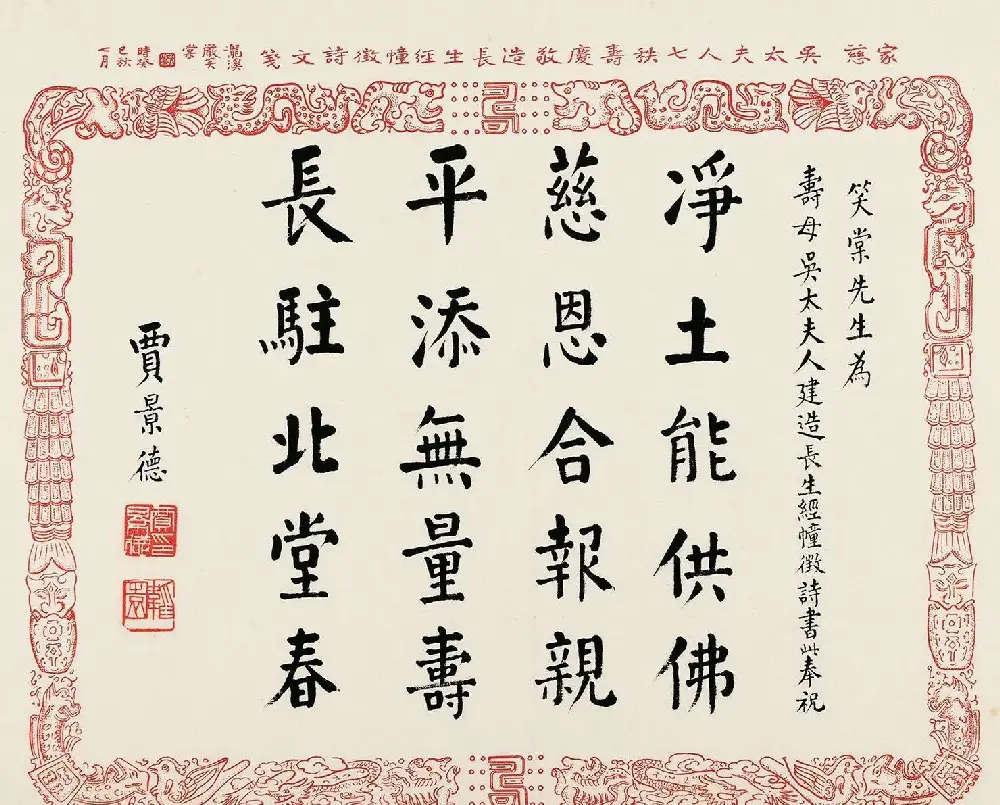 家慈吳太夫人七秩壽慶敬造長生經幢徵詩文箋
瀧溪
嚴笑
棠
時癸
巳秋
七月
笑棠先生為
壽母吳太夫人建造長生經幢徵詩書此奉祝
凈土能供佛
慈恩合報親
平添無量壽
長駐北堂春
賈景德